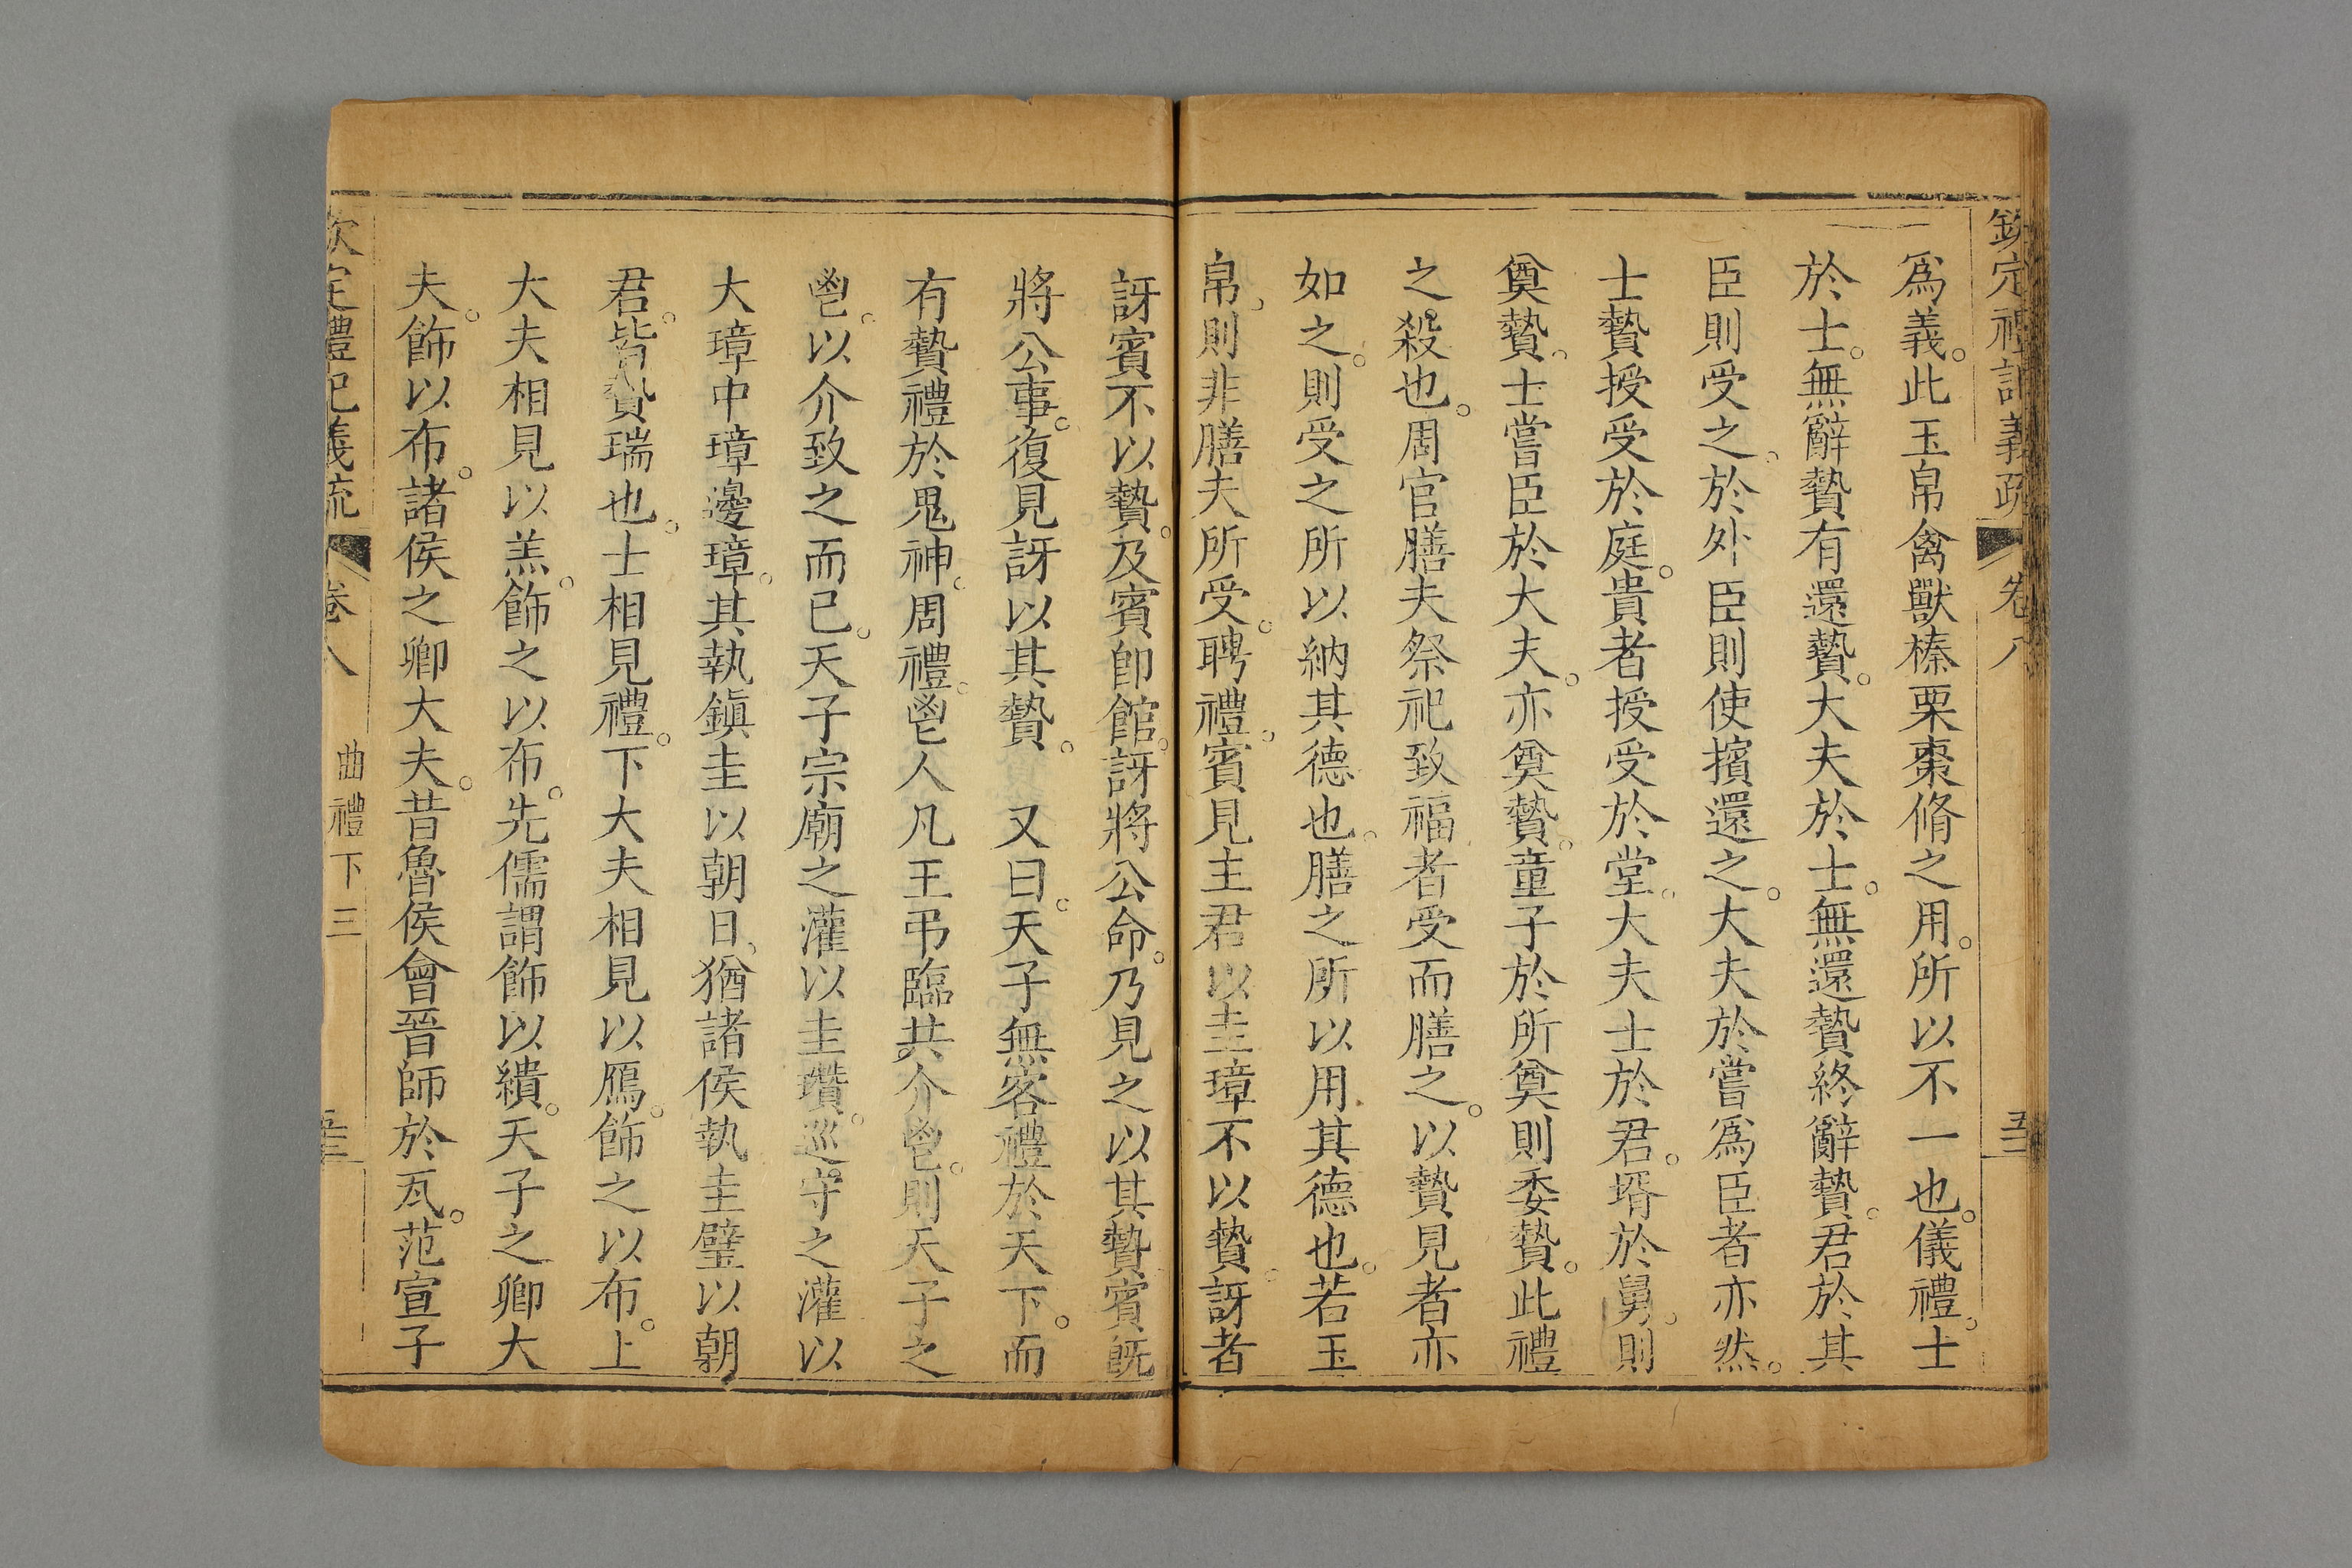 欽定禮記義疏 卷八 五三
爲義。此玉帛禽獸榛栗棗脩之用。所以不一也。儀禮。士
於士。無辭贄有還贄。大夫於士。無還贄終辭贄。君於其
臣則受之。於外臣則使擯還之。大夫於嘗爲臣者亦然。
士贄授受於庭。貴者授受於堂。大夫士於君。壻於舅。則
奠贄。士嘗臣於大夫。亦奠贄。童子於所奠則委贄。此禮
之殺也。周官膳夫祭祀致福者受而膳之。以贄見者亦
如之。則受之所以納其德也。膳之所以用其德也。若玉
帛。則非膳夫所受。聘禮。賓見主君以圭璋不以贄。訝者
訝賓不以贄。及賓卽館。訝將公命。乃見之以其贄賓旣
將公事。復見訝以其贄。 又曰。天子無客禮於天下。而
有贄禮於鬼神。周禮。鬯人凡王弔臨共介鬯。則天子之
鬯。以介致之而已。天子宗廟之灌以圭瓚。巡守之灌以
大璋中璋邊璋。其執鎭圭以朝日、猶諸侯執圭璧以朝
君。皆贄瑞也。士相見禮。下大夫相見以鴈。飾之以布。上
大夫相見以羔。飾之以布。先儒謂飾以繢。天子之卿大
夫。飾以布。諸侯之卿大夫。昔魯侯會晉師於瓦。范宣子
欽定禮記義疏 卷八 曲禮下三 五三